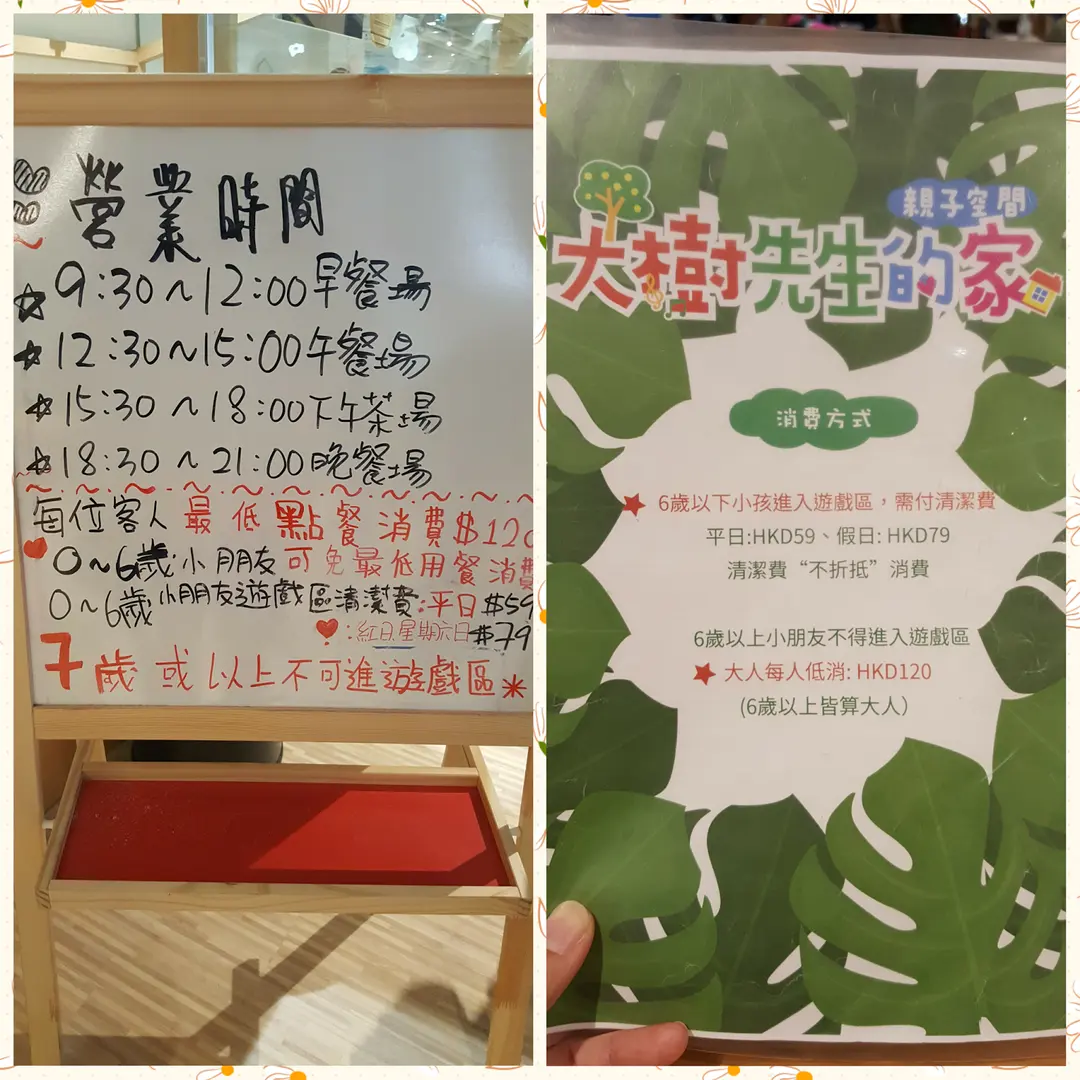 營業時間
9:30~12:00早餐場
12:30~15:00午餐場
15:30~18:00下午茶場
18:30~21:00晚餐場
每位客人最低點餐消費$120
0~6歲小朋友可免最低用餐消費
0~6歲小朋友遊戲區清潔費:平日$59
:紅日星期六日$79
7歲或以上不可進遊戲區*
親子空間
大樹先生的家
消費方式
6歲以下小孩進入遊戲區，需付清潔費
平日:HKD59、假日: HKD79
清潔費“不折抵”消費
6歲以上小朋友不得進入遊戲區
大人每人低消: HKD120
(6歲以上皆算大人)